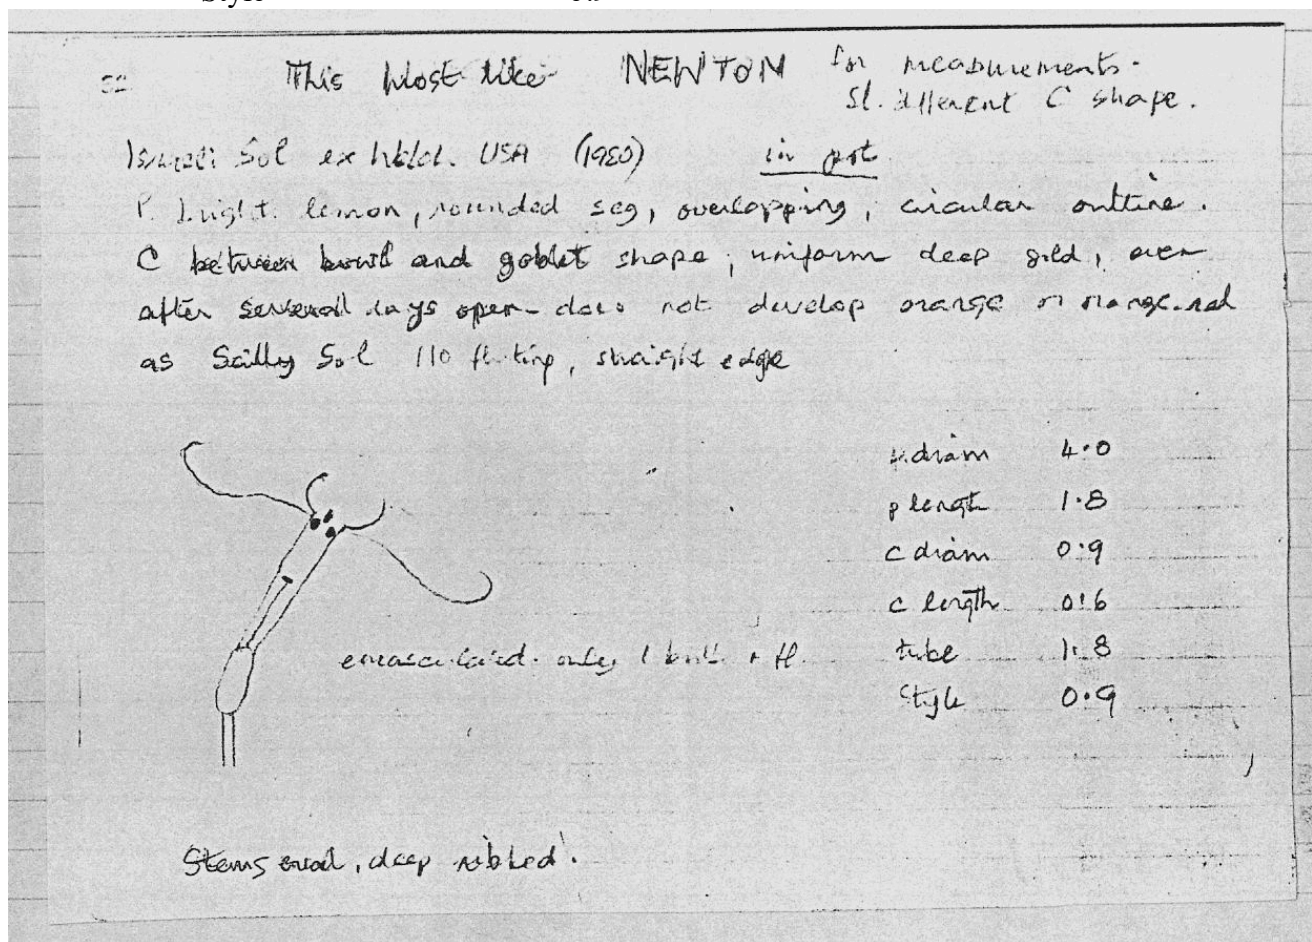 This most like NEWTON for measurements.
Sl. different C shape.
Israeli Sol ex USA (1980) in pot
P. bright lemon, rounded seg, overlapping, circular outline.
C between bowl and goblet shape, uniform deep gold, even
after several days open - does not develop orange or orange-red
as Scilly Sol no fluting, straight edge
p. diam 4.0
p length 1.8
c diam 0.9
c length 0.6
emasculated. only 1 bulb + fl. tube 1.8
style 0.9
Stems oval, deep ribbed.